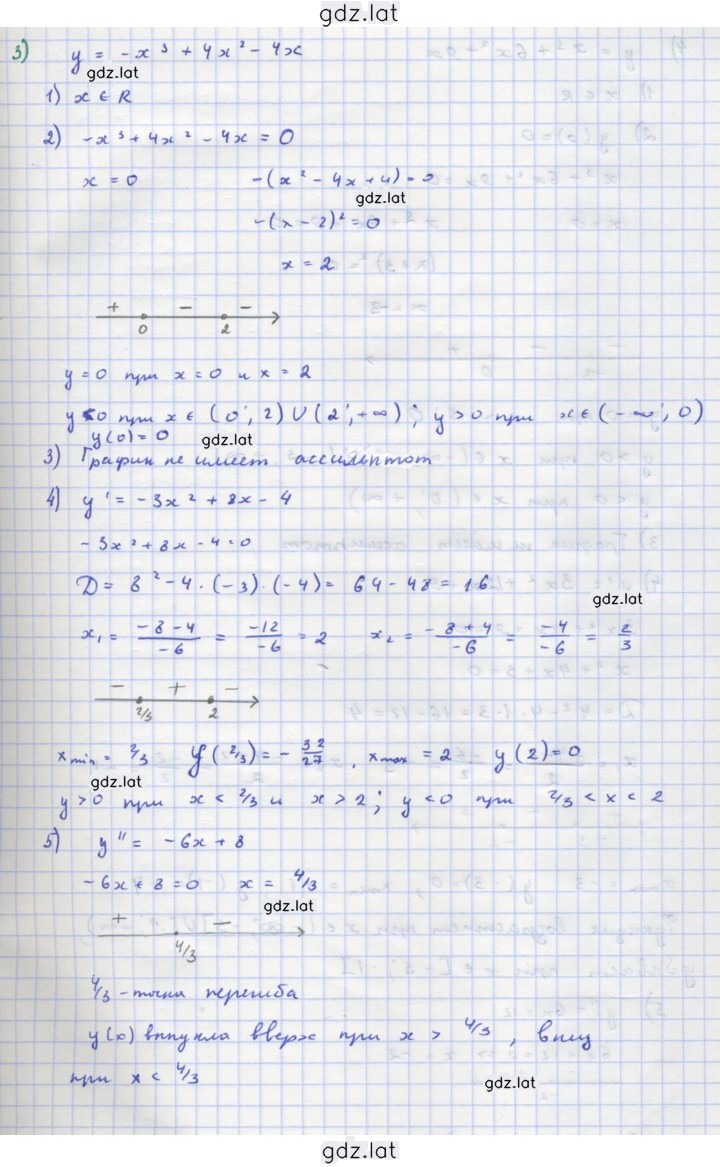 gdz.lat
3) y = -x³ + 4x² - 4x
gdz.lat
1) x ∈ R
2) -x³ + 4x² - 4x = 0
x = 0 -(x² - 4x + 4) = 0
gdz.lat
-(x - 2)² = 0
x = 2
+ - -
0 2
y = 0 при x = 0 и x = 2
y < 0 при x ∈ (0; 2) ∪ (2; +∞); y > 0 при x ∈ (-∞; 0)
y(0) = 0
gdz.lat
3) График не имеет ассимптот
4) y' = -3x² + 8x - 4
-3x² + 8x - 4 = 0
D = 8² - 4 · (-3) · (-4) = 64 - 48 = 16
gdz.lat
x₁ = (-8 - 4)/(-6) = (-12)/(-6) = 2 x₂ = (-8 + 4)/(-6) = (-4)/(-6) = 2/3
- + -
2/3 2
x min = 2/3 y(2/3) = -32/27, x max = 2 y(2) = 0
gdz.lat
y > 0 при x < 2/3 и x > 2; y < 0 при 2/3 < x < 2
5) y'' = -6x + 8
-6x + 8 = 0 x = 4/3
gdz.lat
+ -
4/3
4/3 - точка перегиба
y(x) выпукла вверх при x > 4/3, вниз
при x < 4/3
gdz.lat
gdz.lat